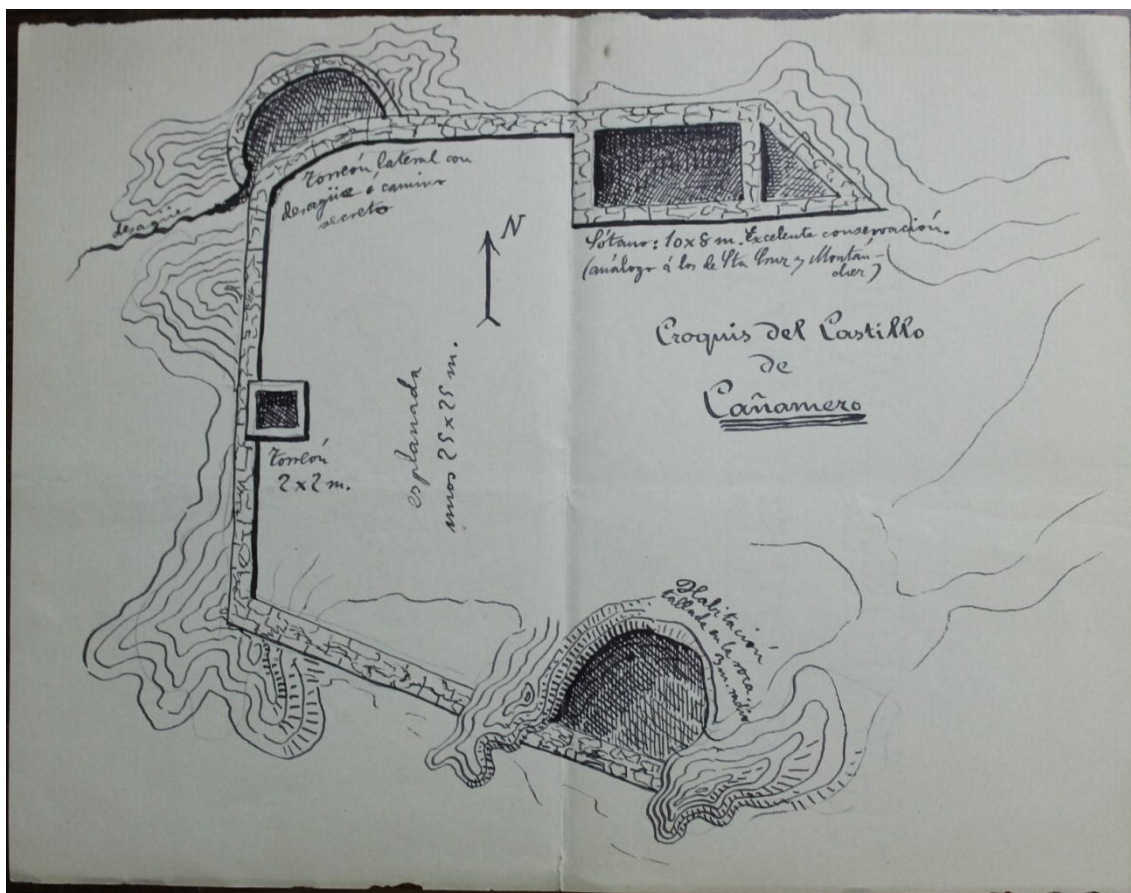 Torreón lateral con
desagüe ó camino
secreto
desagüe
N
Sótano: 10x8 m. Excelente conservación.
(análogo á los de Sta Cruz y Montán-
chez)
Croquis del Castillo
de
Cañamero
esplanada
unos 25x25 m.
Torreón
2x2 m.
Habitación
tallada en la roca
3 m. radio